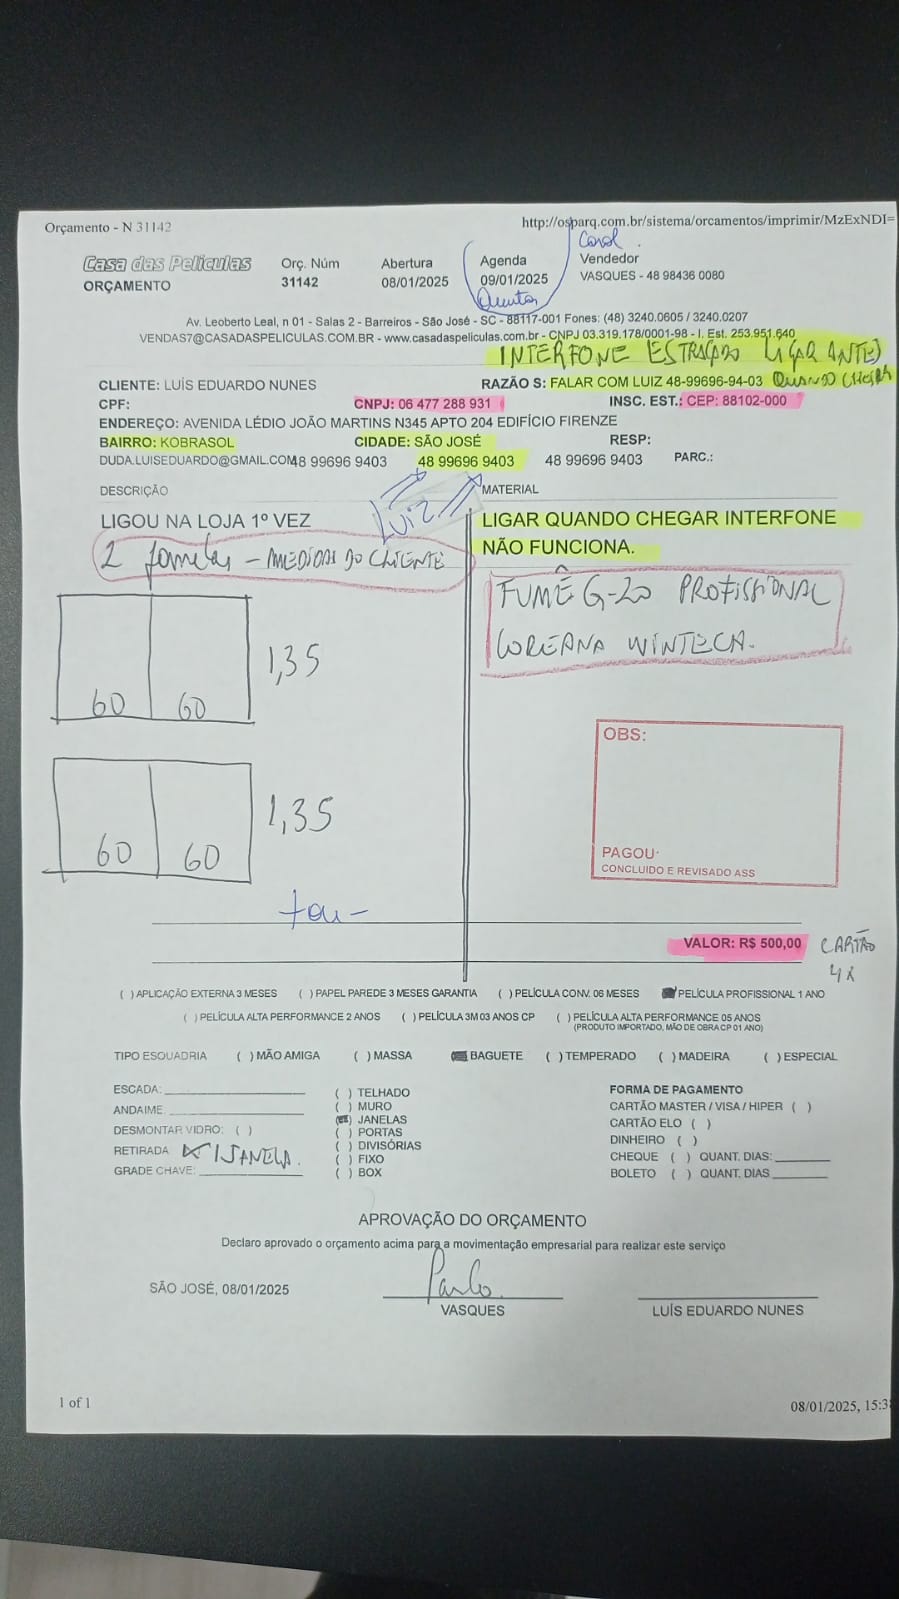 Orçamento - N 31142
http://osparq.com.br/sistema/orcamentos/imprimir/MzExNDI=
Casa das Películas
ORÇAMENTO
Orç. Núm
31142
Abertura
08/01/2025
Agenda
09/01/2025
Quinta
Carol
Vendedor
VASQUES - 48 98436 0080
Av. Leoberto Leal, n 01 - Salas 2 - Barreiros - São José - SC - 88117-001 Fones: (48) 3240.0605 / 3240.0207
VENDAS7@CASADASPELICULAS.COM.BR - www.casadaspeliculas.com.br - CNPJ 03.319.178/0001-98 - I. Est. 253.951.640
INTERFONE ESTRAGADO LIGAR ANTES
CLIENTE: LUÍS EDUARDO NUNES
RAZÃO S: FALAR COM LUIZ 48-99696-94-03 QUANDO CHEGAR
CPF:
CNPJ: 06 477 288 931
INSC. EST.: CEP: 88102-000
ENDEREÇO: AVENIDA LÉDIO JOÃO MARTINS N345 APTO 204 EDIFÍCIO FIRENZE
BAIRRO: KOBRASOL
CIDADE: SÃO JOSÉ
RESP:
DUDA.LUISEDUARDO@GMAIL.COM 48 99696 9403
48 99696 9403
48 99696 9403
PARC.:
DESCRIÇÃO
LUIZ
MATERIAL
LIGOU NA LOJA 1º VEZ
2 janelas - MEDIDAS DO CLIENTE
LIGAR QUANDO CHEGAR INTERFONE
NÃO FUNCIONA.
FUMÊ G-20 PROFISSIONAL
COREANA WINTECA.
1,35
60 60
1,35
60 60
OBS:
PAGOU:
CONCLUIDO E REVISADO ASS
VALOR: R$ 500,00
CARTÃO
4X
( ) APLICAÇÃO EXTERNA 3 MESES ( ) PAPEL PAREDE 3 MESES GARANTIA ( ) PELÍCULA CONV. 06 MESES PELÍCULA PROFISSIONAL 1 ANO
( ) PELÍCULA ALTA PERFORMANCE 2 ANOS ( ) PELÍCULA 3M 03 ANOS CP ( ) PELÍCULA ALTA PERFORMANCE 05 ANOS
(PRODUTO IMPORTADO, MÃO DE OBRA CP 01 ANO)
TIPO ESQUADRIA ( ) MÃO AMIGA ( ) MASSA BAGUETE ( ) TEMPERADO ( ) MADEIRA ( ) ESPECIAL
ESCADA:
ANDAIME:
DESMONTAR VIDRO: ( )
RETIRADA X 1 JANELA.
GRADE CHAVE:
( ) TELHADO
( ) MURO
( ) JANELAS
( ) PORTAS
( ) DIVISÓRIAS
( ) FIXO
( ) BOX
FORMA DE PAGAMENTO
CARTÃO MASTER / VISA / HIPER ( )
CARTÃO ELO ( )
DINHEIRO ( )
CHEQUE ( ) QUANT. DIAS:
BOLETO ( ) QUANT. DIAS
APROVAÇÃO DO ORÇAMENTO
Declaro aprovado o orçamento acima para a movimentação empresarial para realizar este serviço
SÃO JOSÉ, 08/01/2025
Paulo
VASQUES
LUÍS EDUARDO NUNES
1 of 1
08/01/2025, 15:3